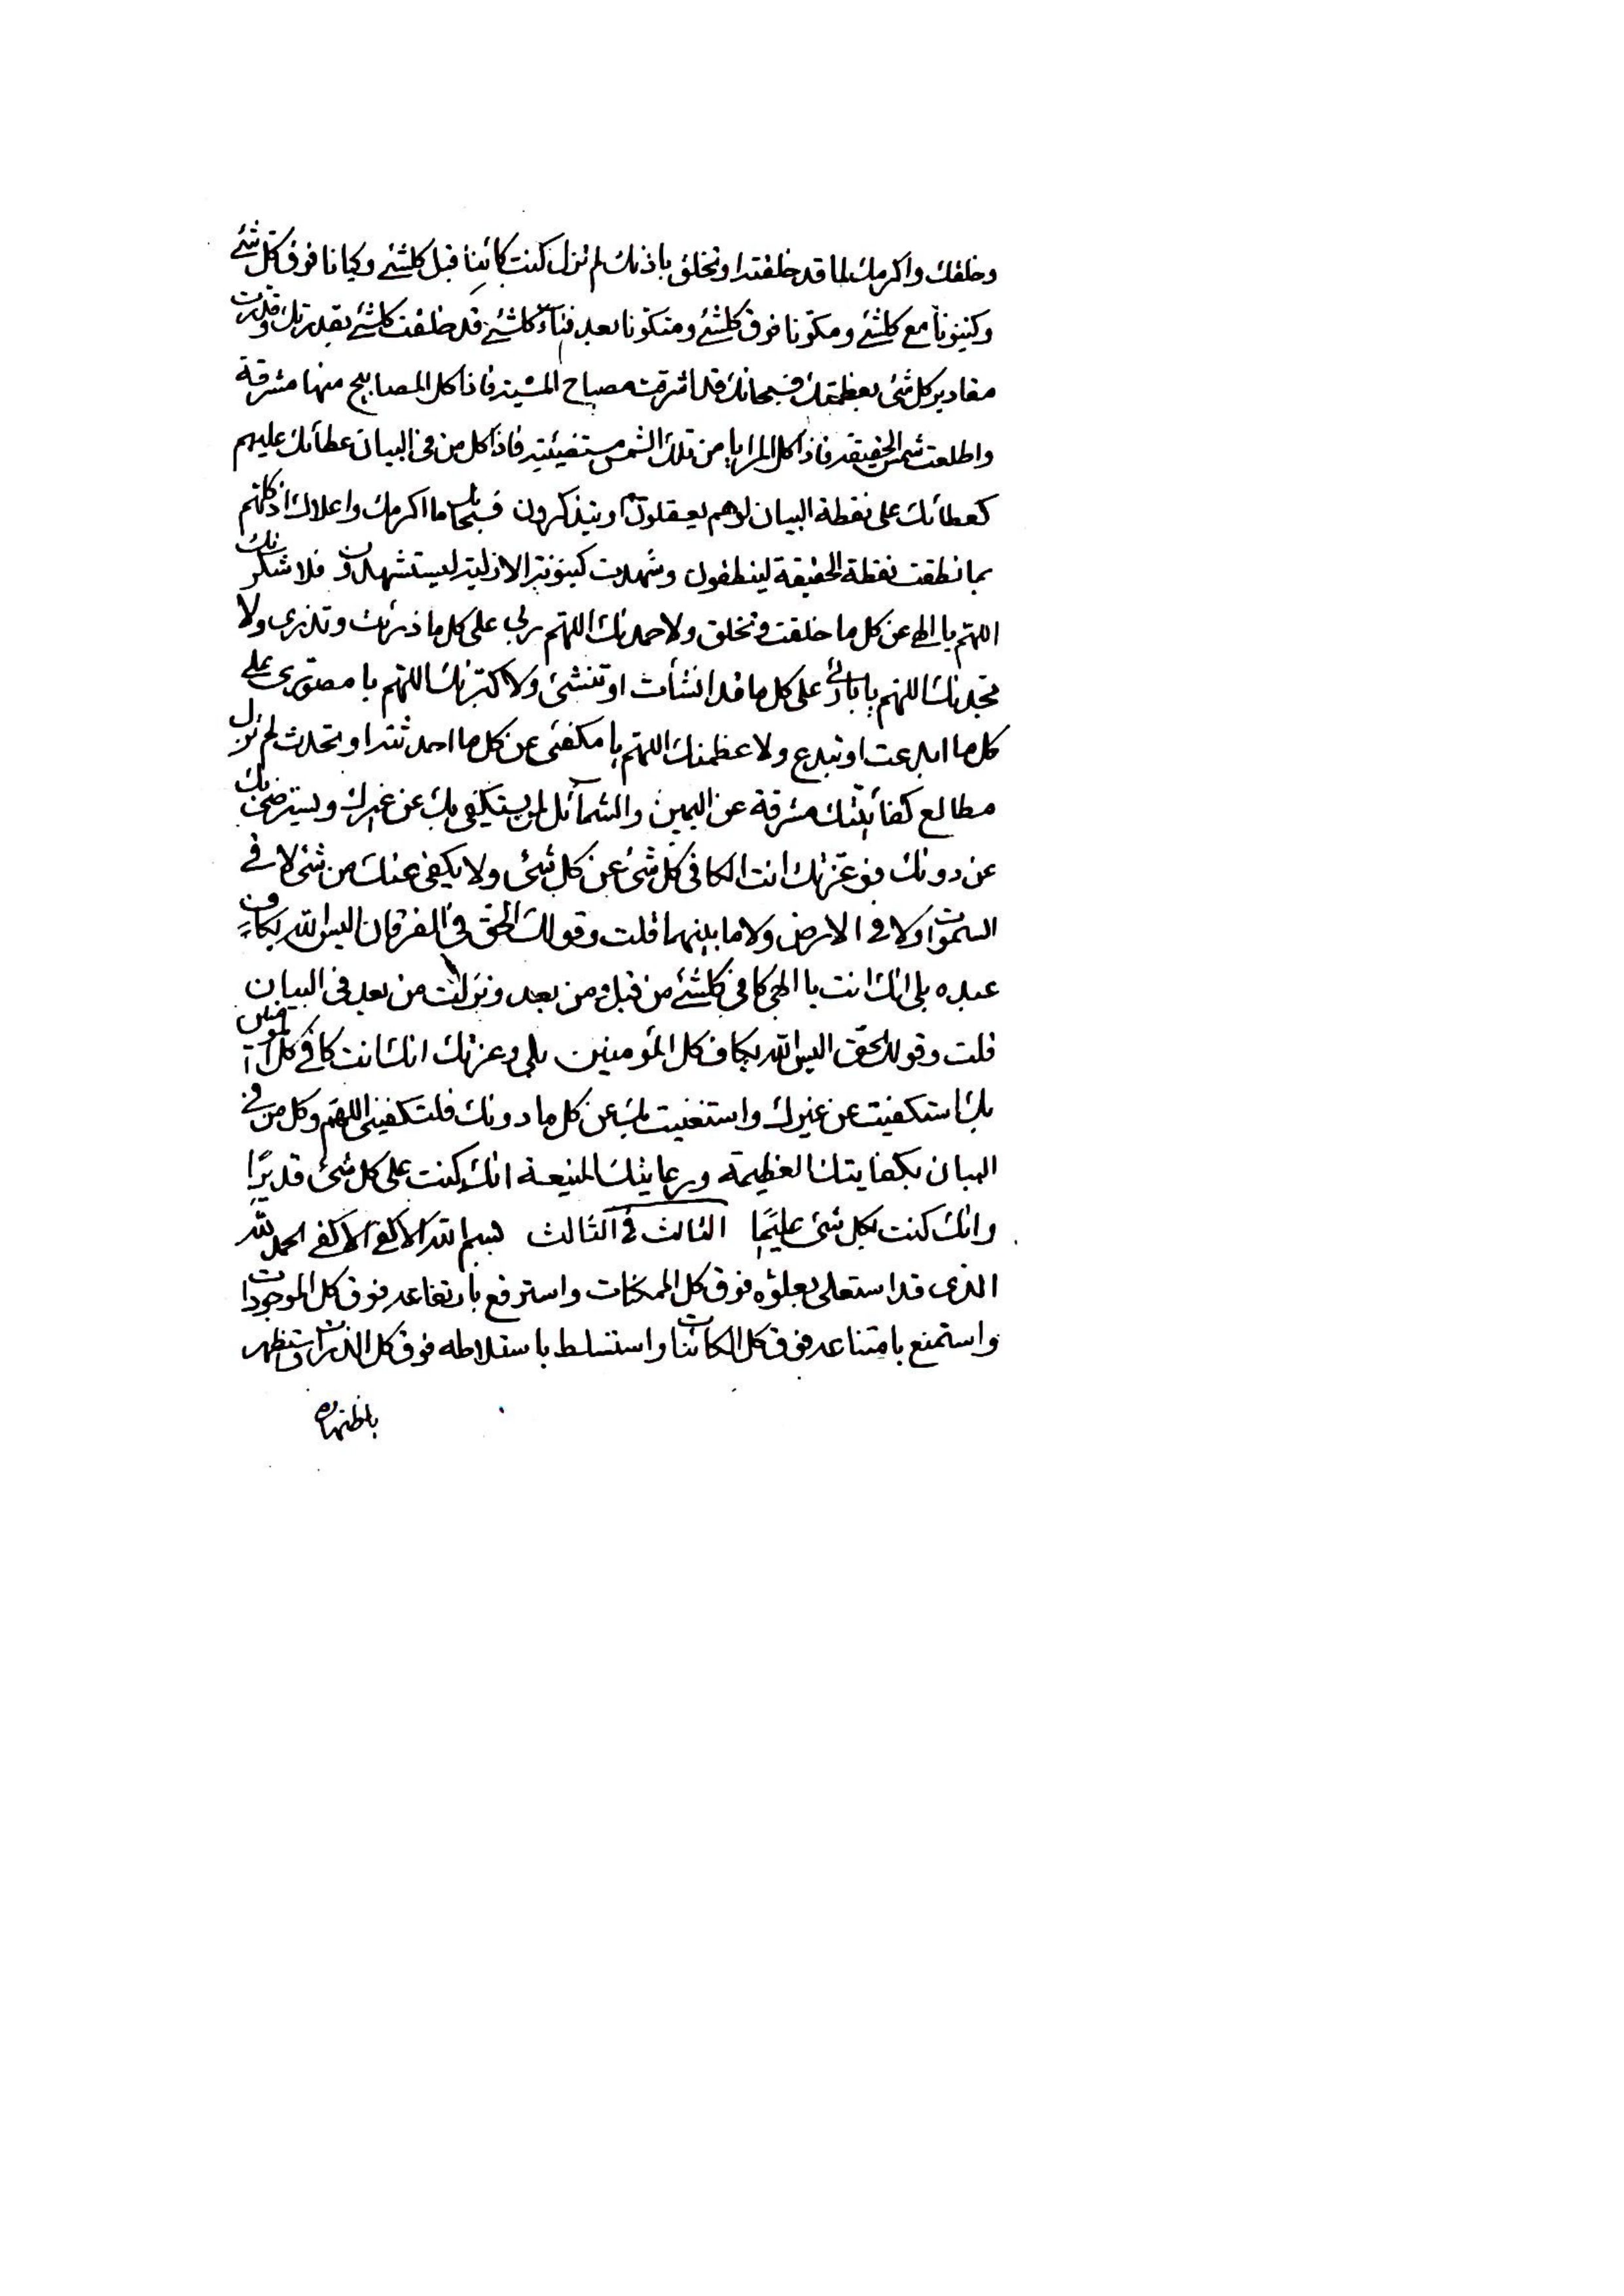 وخلقك واكرمك لما قد خلقته او تخلق باذنك لم تزل كنت كائنا قبل كلشئ وكيانا فوق كل شئ
وكينونا مع كلشئ ومكونا فوق كلشئ ومتكونا بعد فناء كلشئ قد خلقت كلشئ بقدرتك وقدرت
مقادير كل شئ بعظمتك فسبحانك قد اشرقت مصباح المشية فاذا كل المصابيح منها مشرقة
واطلعت شمس الحقيقة فاذا كل المرايا من تلك الشمس مستضيئة فاذا كل من في البيان عطائك عليهم
كعطائك على نقطة البيان لو هم يعقلون او يتذكرون فسبحانك ما اكرمك واعلاك اذ كلهم
بما نطقت نقطة الحقيقة لينطقون وشهدت كينونته الازلية ليستشهدون فلاشكرنك
اللهم يا الهي عن كل ما خلقت وتخلق ولاحمدنك اللهم ربي على كل ما ذرئت وتذرى ولا
مجدنك اللهم يا بارئي على كل ما قد انشأت او تنشئ ولاكبرنك اللهم يا مصوري على
كل ما ابدعت او تبدع ولاعظمنك اللهم يا مكفئي عن كل ما احدثته او تحدث لم تزل
مطالع كفائيتك مشرقة عن اليمين والشمائل لمن يستكفي بك عن غيرك ويسترضي بك
عن دونك فوعزتك انت الكافي كل شئ عن كل شئ ولا يكفي عنك من شئ لا في
السموات ولا في الارض ولا ما بينهما قلت وقولك الحق في الفرقان اليس الله بكاف
عبده بلى انك انت يا الهي كافي كلشئ من قبل ومن بعد ونزلت من بعد في البيان
قلت وقولك الحق اليس الله بكاف كل المؤمنين بلى وعزتك انك انت كافي كل المؤمنين
بك استكفيت عن غيرك واستغنيت بك عن كل ما دونك فلتكفيني اللهم وكل من في
البيان بكفايتك العظيمة ورعايتك المنيعة انك كنت على كل شئ قديرا
وانك كنت بكل شئ عليما الثالث في الثالث بسم الله الاكفى الاكفى الحمد لله
الذي قد استعلى بعلوه فوق كل الممكنات واسترفع بارتفاعه فوق كل الموجودات
واستمنع بامتناعه فوق كل الكائنات واستسلط باستلاطه فوق كل الذرات واستظهر
باظتهاره